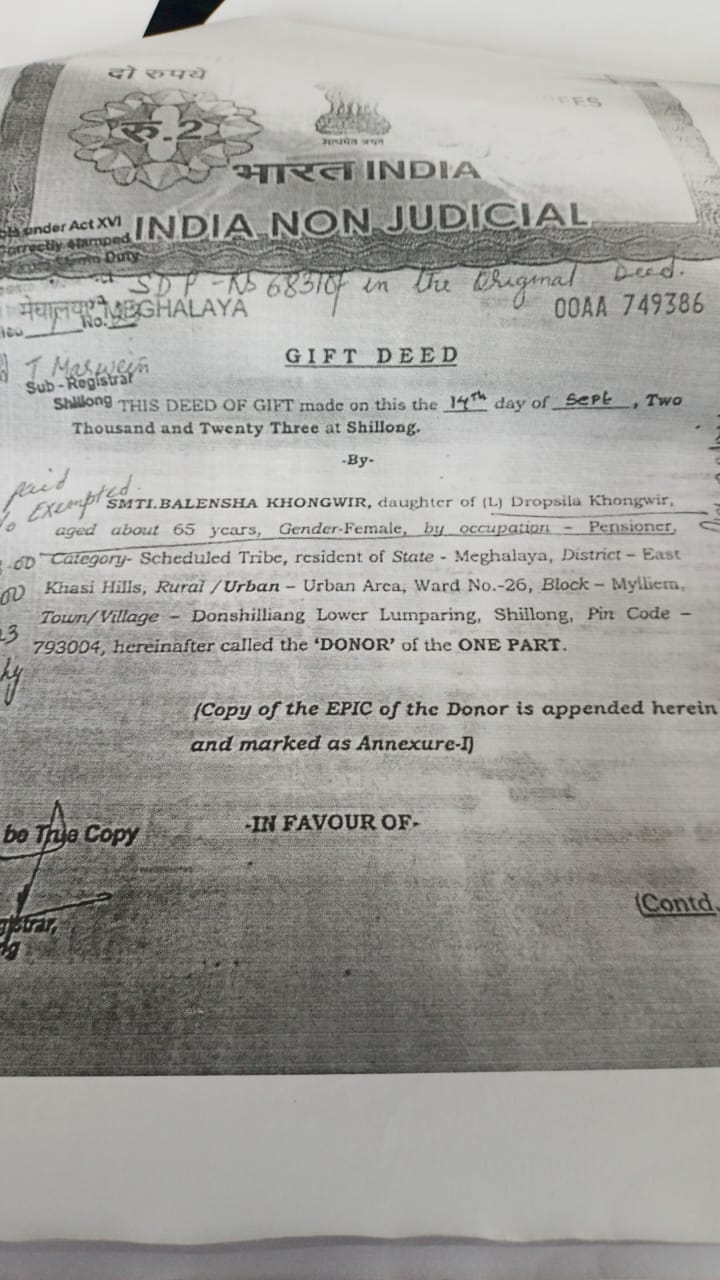 दो रुपये
रु.2
सत्यमेव जयते
भारत INDIA
INDIA NON JUDICIAL
under Act XVI
correctly stamped
Duty
SDP - Rs 68310/- in the Original Deed.
मेघालय MEGHALAYA
No.
00AA 749386
T Marwein
Sub-Registrar
Shillong
GIFT DEED
THIS DEED OF GIFT made on this the 14th day of Sept, Two
Thousand and Twenty Three at Shillong.
-By-
paid
Exempted.
SMTI.BALENSHA KHONGWIR, daughter of (L) Dropsila Khongwir,
aged about 65 years, Gender-Female, by occupation – Pensioner,
Category- Scheduled Tribe, resident of State - Meghalaya, District – East
Khasi Hills, Rural /Urban – Urban Area, Ward No.-26, Block – Mylliem,
Town/Village – Donshilliang Lower Lumparing, Shillong, Pin Code –
793004, hereinafter called the ‘DONOR’ of the ONE PART.
(Copy of the EPIC of the Donor is appended herein
and marked as Annexure-I)
-IN FAVOUR OF-
be True Copy
(Contd.